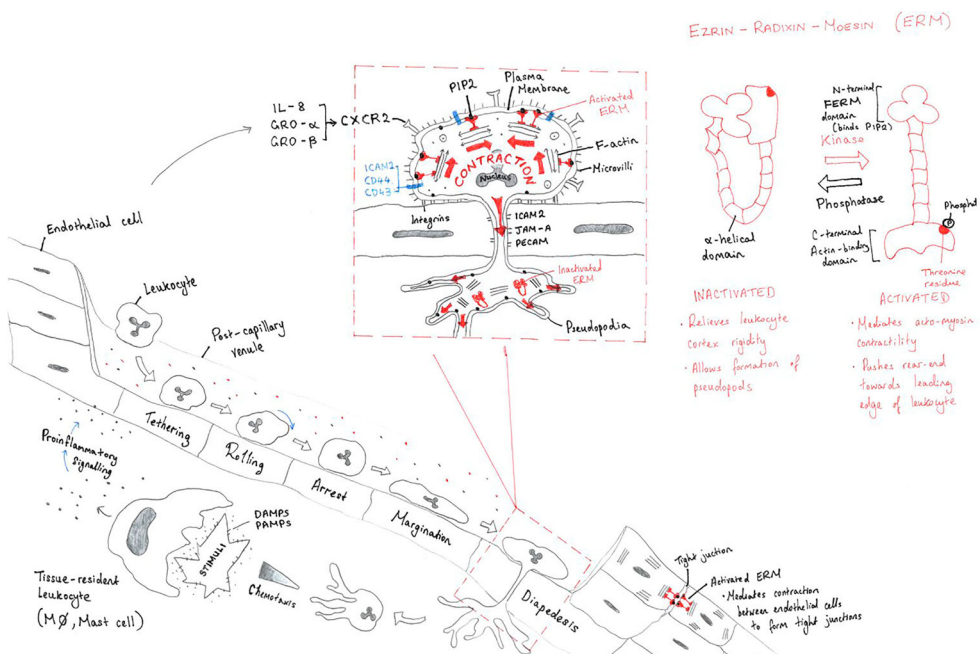 EZRIN - RADIXIN - MOESIN (ERM)
IL-8
GRO-α
GRO-β
CXCR2
PIP2
Plasma
Membrane
Activated
ERM
F-actin
Microvilli
CONTRACTION
Nucleus
ICAM2
CD44
CD43
Integrins
ICAM2
JAM-A
PECAM
Inactivated
ERM
Pseudopodia
N-terminal
FERM
domain
(binds PIP2)
Kinase
Phosphatase
α-helical
domain
C-terminal
Actin-binding
domain
Phosphat
P
Threonine
residue
INACTIVATED
• Relieves leukocyte
cortex rigidity
• Allows formation of
pseudopods
ACTIVATED
• Mediates acto-myosin
contractility
• Pushes rear-end
towards leading
edge of leukocyte
Endothelial cell
Leukocyte
Post-capillary
venule
Tethering
Rolling
Arrest
Margination
Diapedesis
Proinflammatory
signalling
DAMPs
PAMPs
STIMULI
Tissue-resident
Leukocyte
(MØ, Mast cell)
Chemotaxis
Tight junction
Activated ERM
• Mediates contraction
between endothelial cells
to form tight junctions